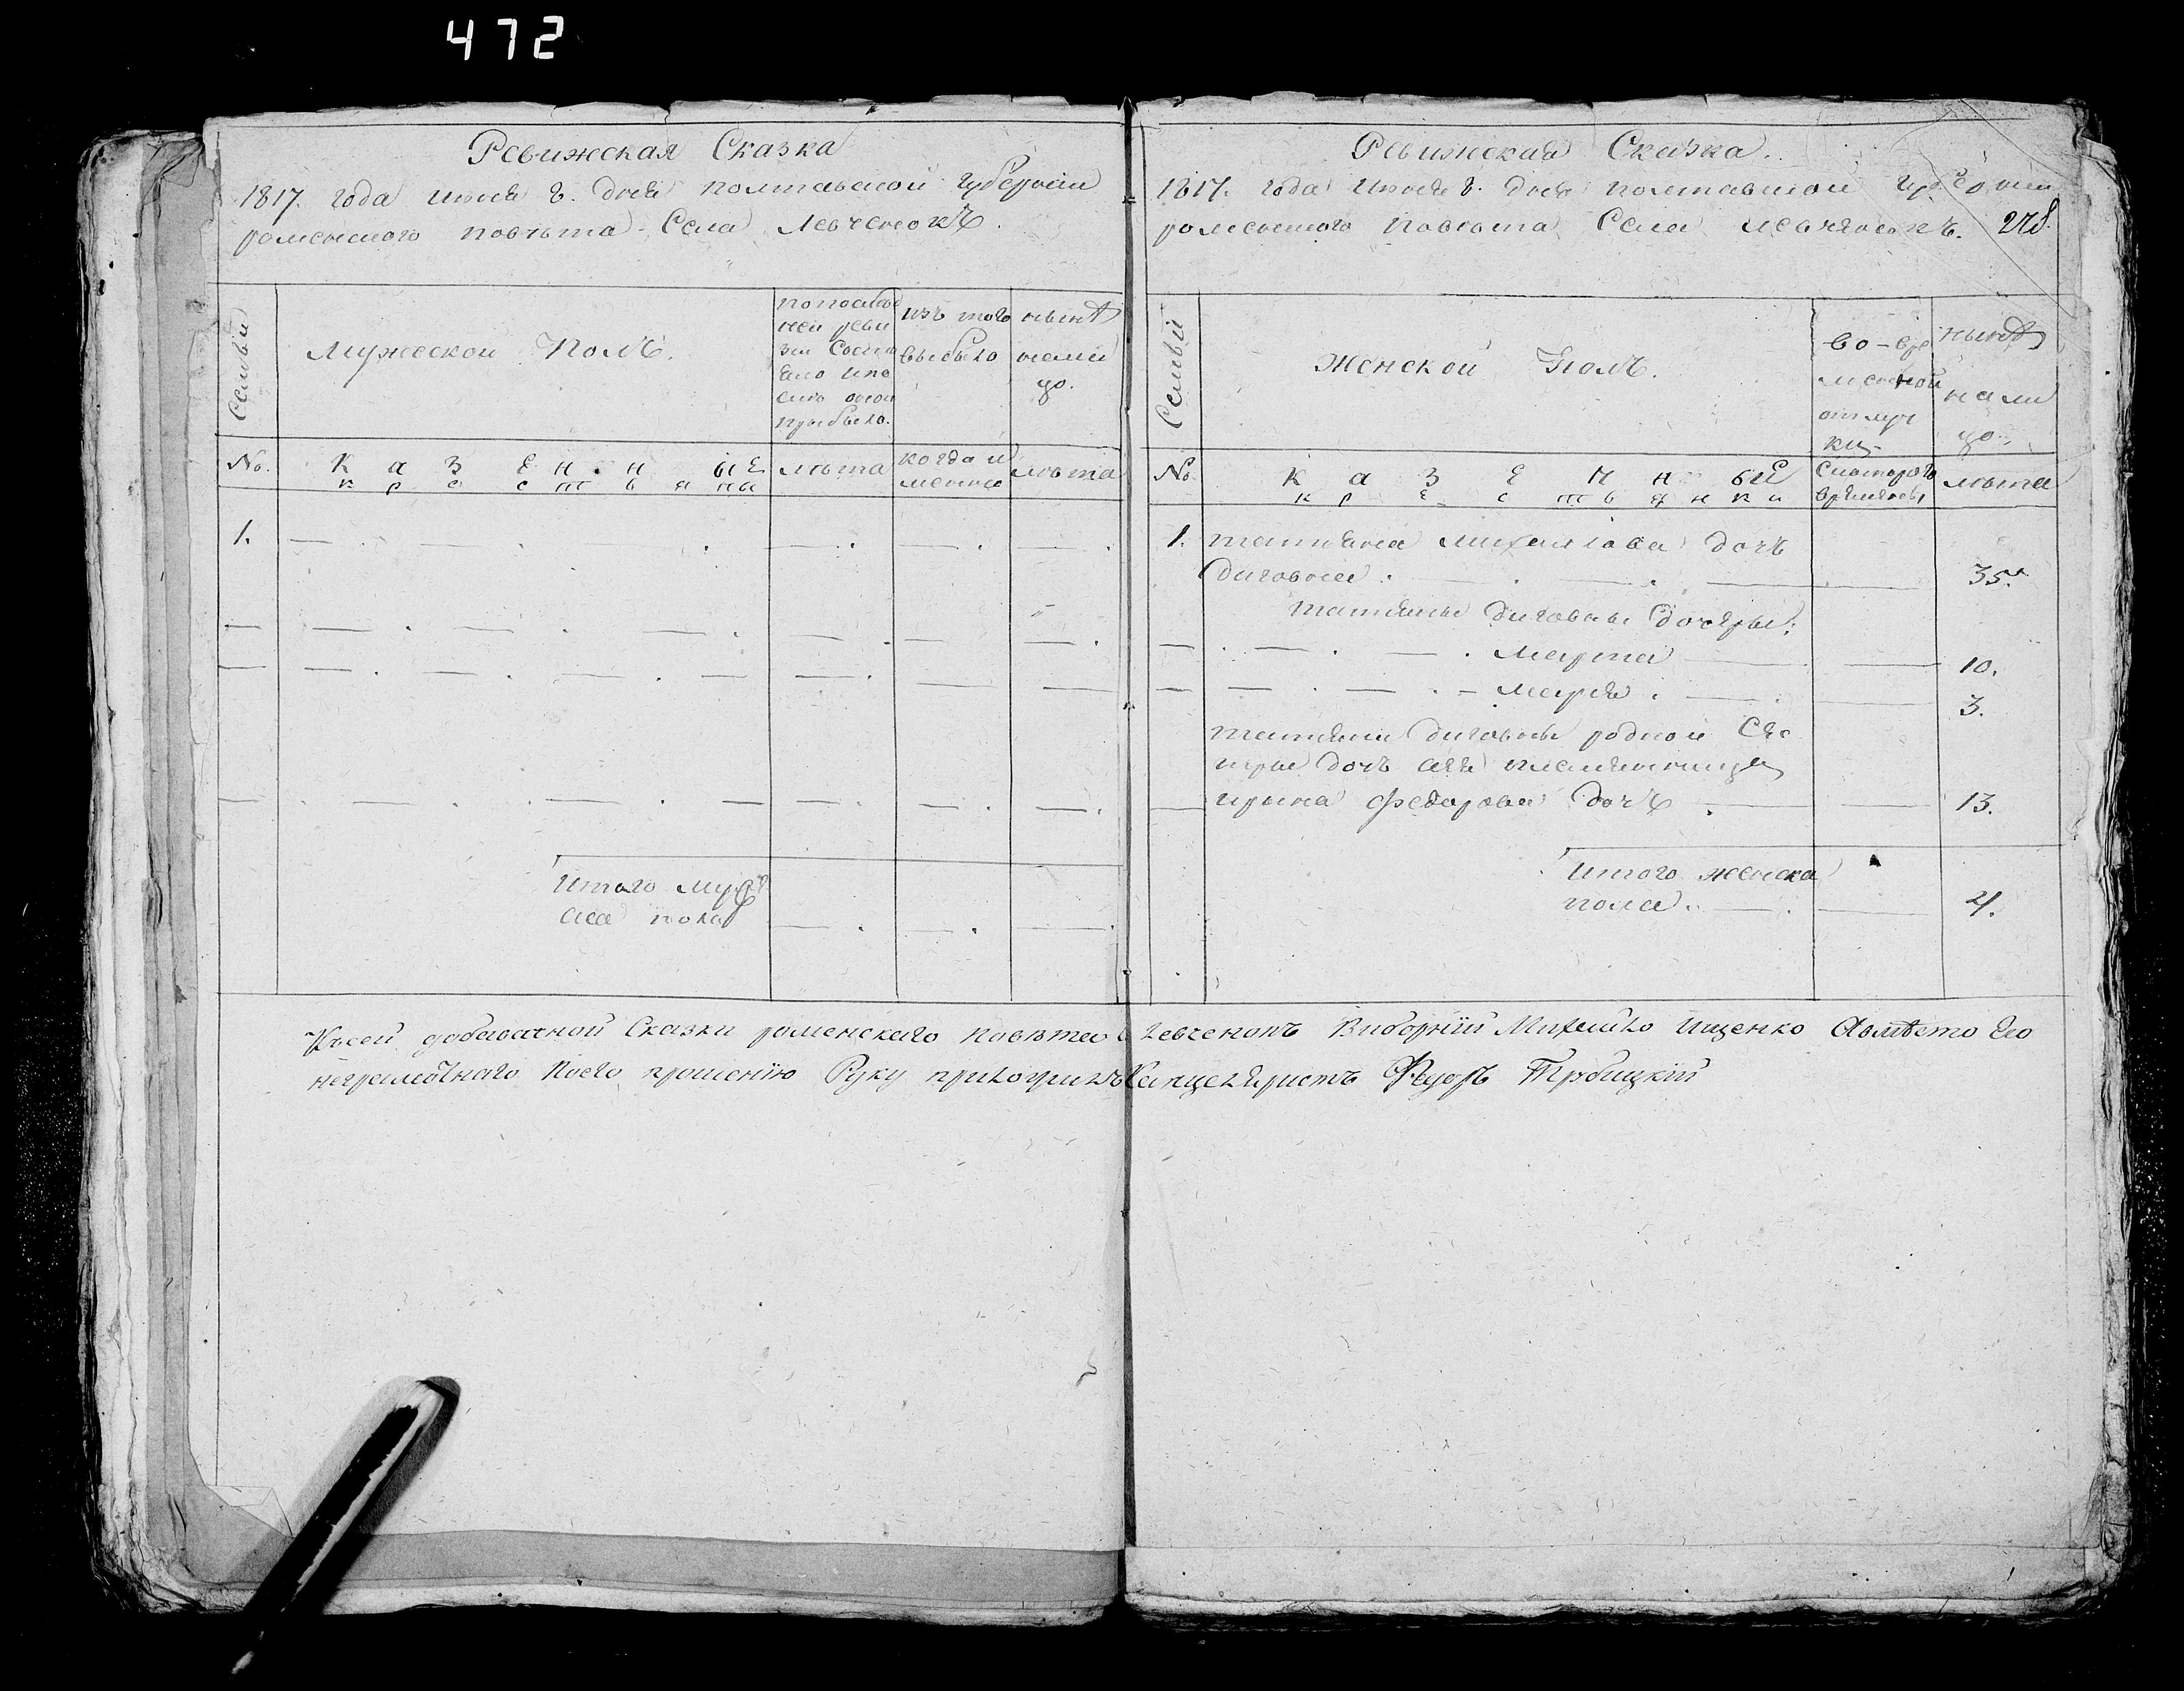 472
Ревижская Сказка
1817. года Июня 8. дня полтавской губернии
роменского повѣта Села Левченокъ.
Семьи
мужеской Полъ.
по послѣд
ней реви
зіи состо
яло и по
слѣ оной
прибыло.
изъ того
выбыло
нынѣ
нали
цо.
№.
К а з Е н н ыЕ
к р е с т ь я ны
лѣта
когда и
лѣта
1.
Итого муж
ска пола
Ревижская Сказка.
1817. года Июня 8. дня полтавской
роменского повѣта Села Левченокъ. 278.
Семьи
Женской Полъ.
во-вре
менной
отлуч
ки
нынѣ
нали
цо.
№
К а з Е н н ыЕ
к р Е с т ь я н к и
Скоторого
времяни
лѣта
1. татияна михаилова дочь
35.
татияны дочери:
марта 10.
мария. 3.
татияни родной Сес
тры дочь племянница
ирина федорова дочь. 13.
Итого женска
пола. 4.
Ксей добавачной Сказки роменскаго повѣта Левченокъ Виборній Михайло Ищенко Авмѣсто Его
неграмотнаго Поего прошенію Руку приложилъ Канцеляристъ Федоръ Трубицкій